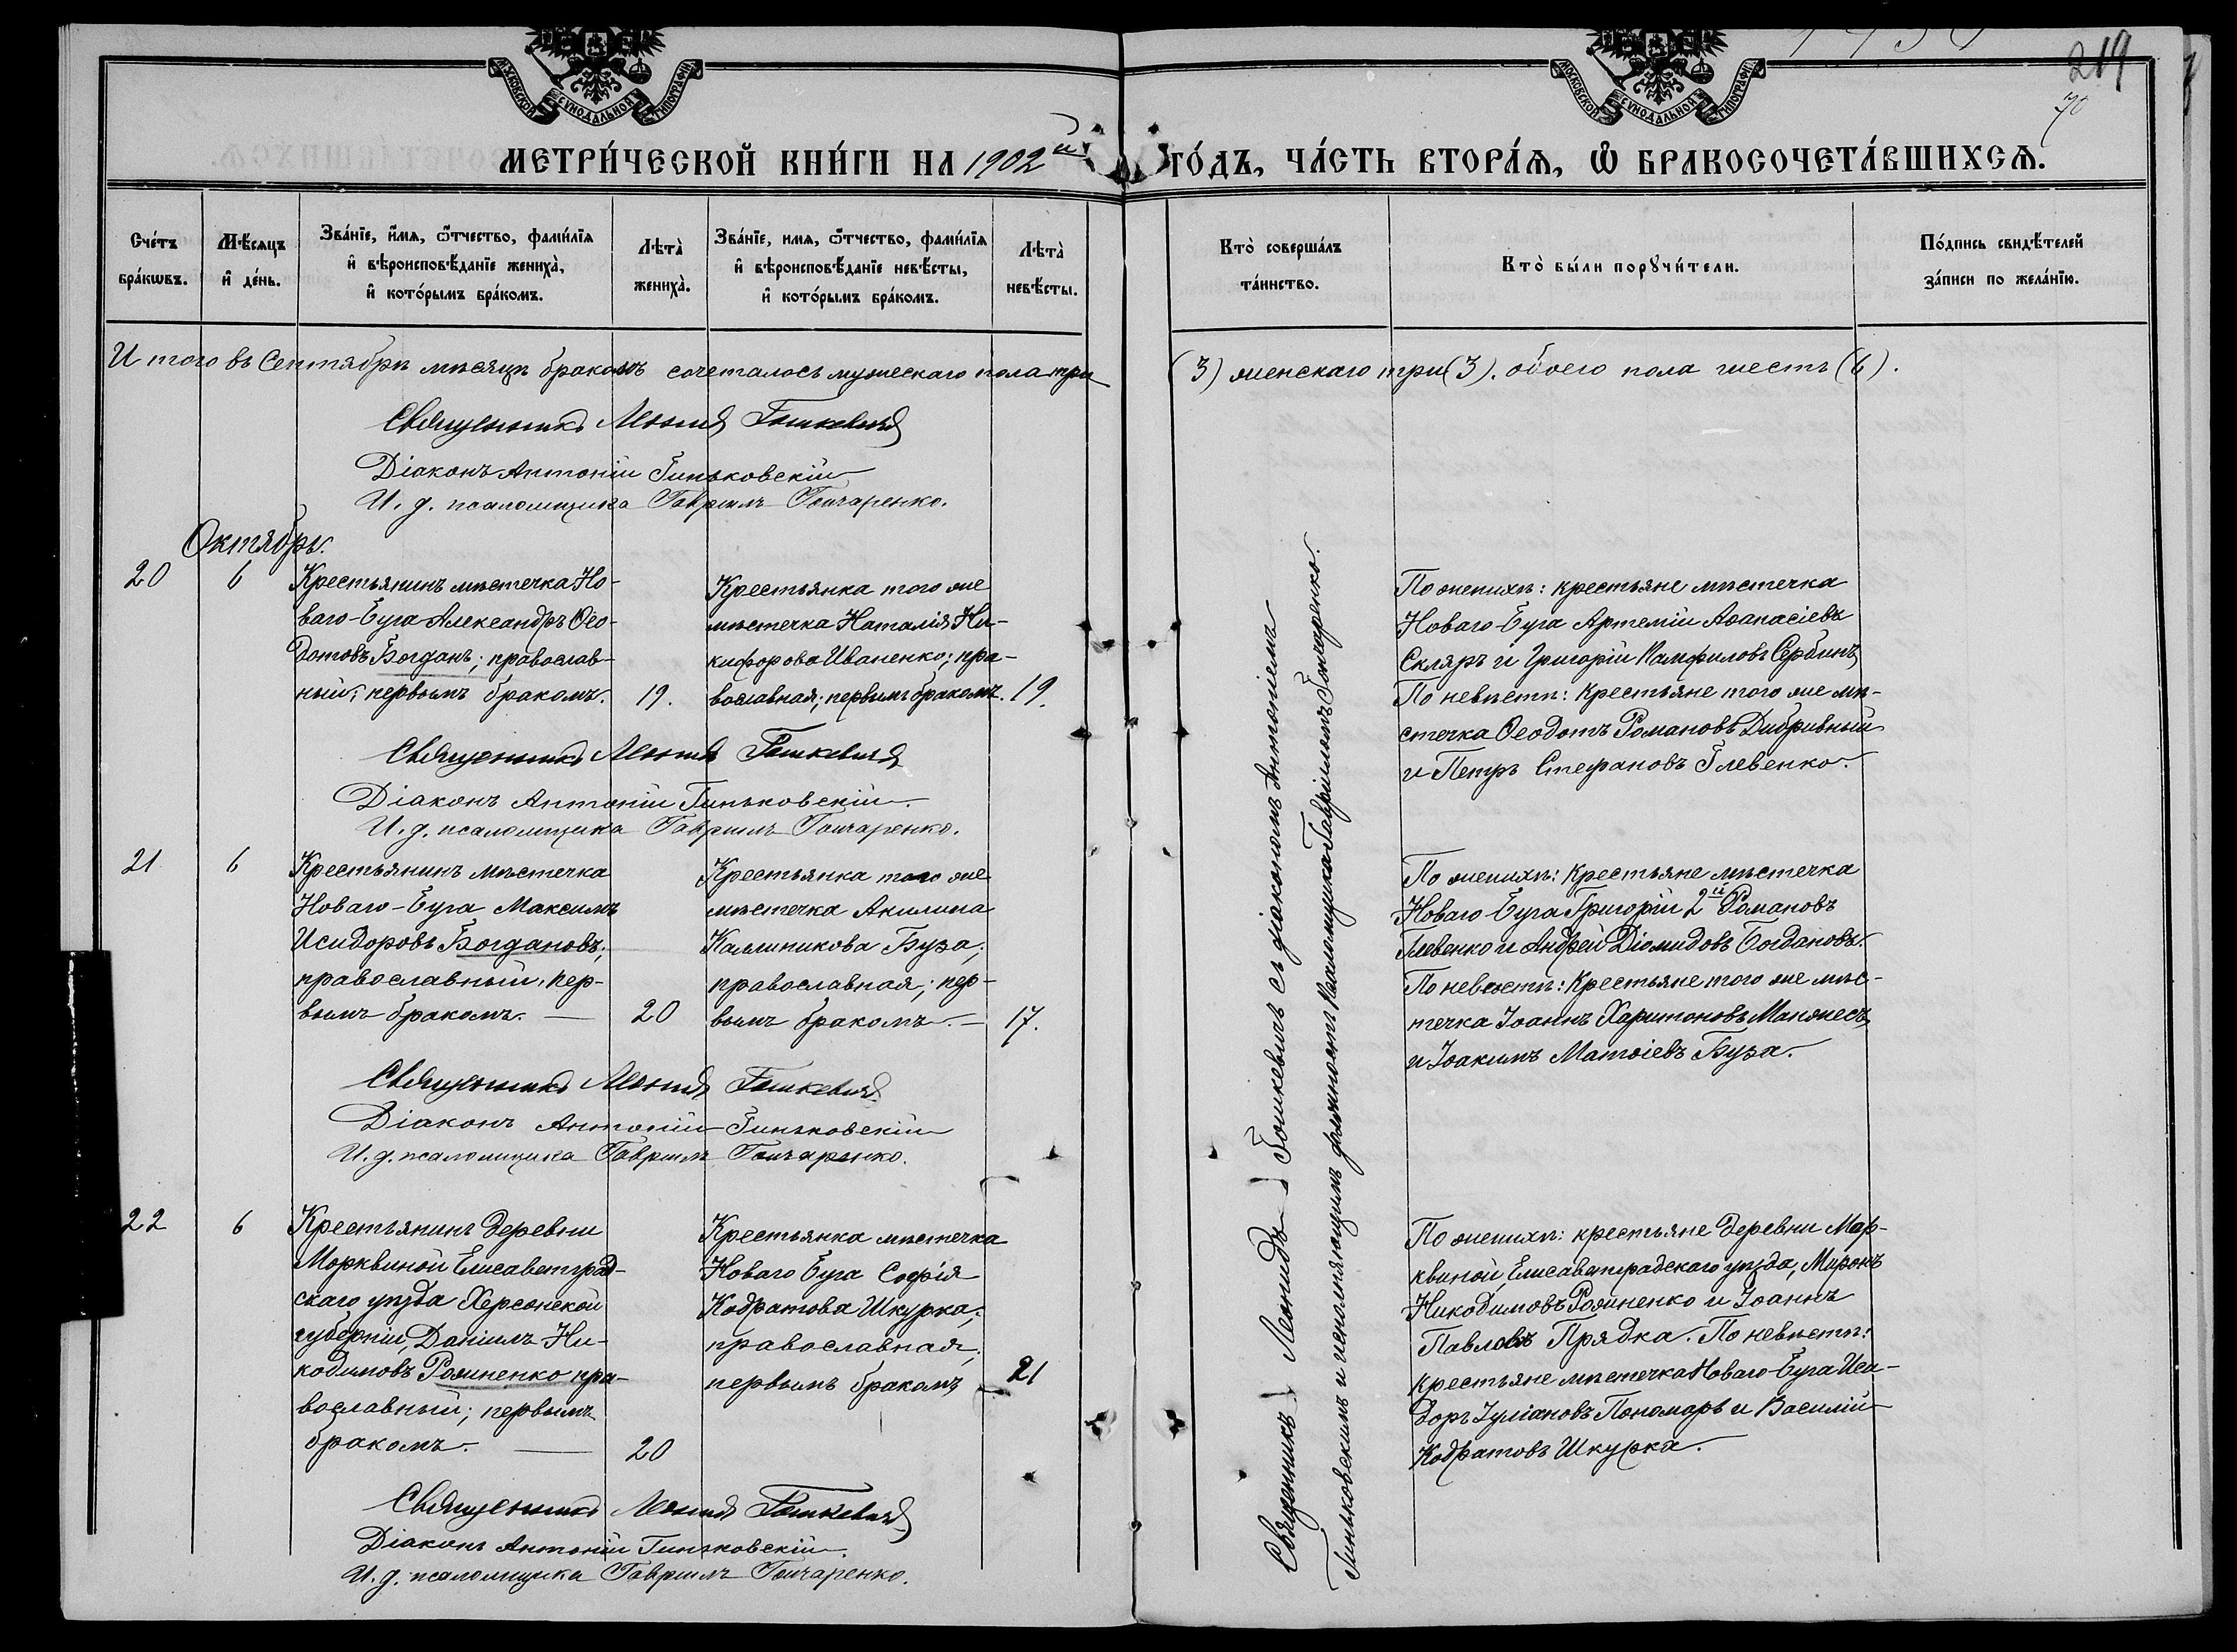 МОСКОВСКОЙ СѴНОДАЛЬНОЙ ТИПОГРАФІИ
МОСКОВСКОЙ СѴНОДАЛЬНОЙ ТИПОГРАФІИ
219
70
МЕТРИ́ЧЕСКОЙ КНИ́ГИ НА 1902й ГО́ДЪ, ЧА́СТЬ ВТОРА́Ѧ, Ѡ БРАКОСОЧЕТА́ВШИХСѦ.
Сче́тъ бра́кѡвъ.
Мѣ́сѧцъ и҆ де́нь.
Зва́нїе, и҆́мѧ, ѻ҆́тчество, фами́лїѧ
и҆ вѣроисповѣ́данїе жениха̀,
и҆ кото́рымъ бра́комъ.
Лѣта̀ жениха̀.
Зва́нїе, имѧ, ѻ҆́тчество, фами́лїѧ
и҆ вѣроисповѣ́данїе невѣ́сты,
и҆ кото́рымъ бра́комъ.
Лѣта̀ невѣ́сты.
Кто̀ соверша́лъ та́инство.
Кто̀ бы́ли порꙋчи́тели.
По́дпись свидѣ́телей за́писи по жела́нїю.
И того въ Сентябрѣ мѣсяцѣ бракомъ сочеталось мужескаго пола три (3) женскаго три (3). обоего пола шесть (6).
Священникъ Леонидъ Гошкевичъ
Діаконъ Антоній Гиньковскій
И. д. псаломщика Гавриилъ Гончаренко.
Октябрь.
20
6
Крестьянинъ мѣстечка Но-
ваго-Буга Александръ Ѳео-
дотовъ Богданъ; православ-
ный; первымъ бракомъ.
19.
Крестьянка того же
мѣстечка Наталія Ни-
кифорова Иваненко; пра-
вославная; первымъ бракомъ.
19.
По женихѣ: крестьяне мѣстечка
Новаго-Буга Артемій Аѳанасіевъ
Скляръ и Григорій Памфиловъ Сербинъ
По невѣстѣ: крестьяне того же мѣ-
стечка Ѳеодотъ Романовъ Дибривный
и Петръ Стефановъ Глевенко.
Священникъ Леонидъ Гошкевичъ
Діаконъ Антоній Гиньковскій.
И. д. псаломщика Гавриилъ Гончаренко.
21
6
Крестьянинъ мѣстечка
Новаго-Буга Максимъ
Исидоровъ Богдановъ;
православный, пер-
вымъ бракомъ.
20
Крестьянка того же
мѣстечка Акилина
Каллиникова Буза;
православная; пер-
вымъ бракомъ.
17.
По женихѣ: Крестьяне мѣстечка
Новаго Буга Григорій 2й Романовъ
Глевенко и Андрей Діомидовъ Богдановъ.
По невѣстѣ: Крестьяне того же мѣс-
течка Іоаннъ Харитоновъ
и Іоакимъ Матѳіевъ Буза.
Священникъ Леонидъ Гошкевичъ
Діаконъ Антоній Гиньковскій
И. д. псаломщика Гавриилъ Гончаренко.
22
6
Крестьянинъ деревни
Морквиной Елисаветград-
скаго уѣзда Херсонской
губерніи, Даніилъ Ни-
кодимовъ Роziненко пра-
вославный; первымъ
бракомъ.
20
Крестьянка мѣстечка
Новаго Буга Софія
Кодратова Шкурка;
православная;
первымъ бракомъ
21
По женихѣ: крестьяне деревни Мор-
квиной, Елисаветградскаго уѣзда, Миронъ
Никодимовъ и Іоаннъ
Павловъ Прядка. По невѣстѣ:
крестьяне мѣстечка Новаго-Буга Иси-
доръ Іуліановъ Пономарь и Василій
Кодратовъ Шкурка.
Священникъ Леонидъ Гошкевичъ
Діаконъ Антоній Гиньковскій.
И. д. псаломщика Гавриилъ Гончаренко.
Священникъ Леонидъ Гошкевичъ съ діакономъ Антоніемъ
Гиньковскимъ и исполняющимъ должность псаломщика Гавріиломъ Гончаренко.